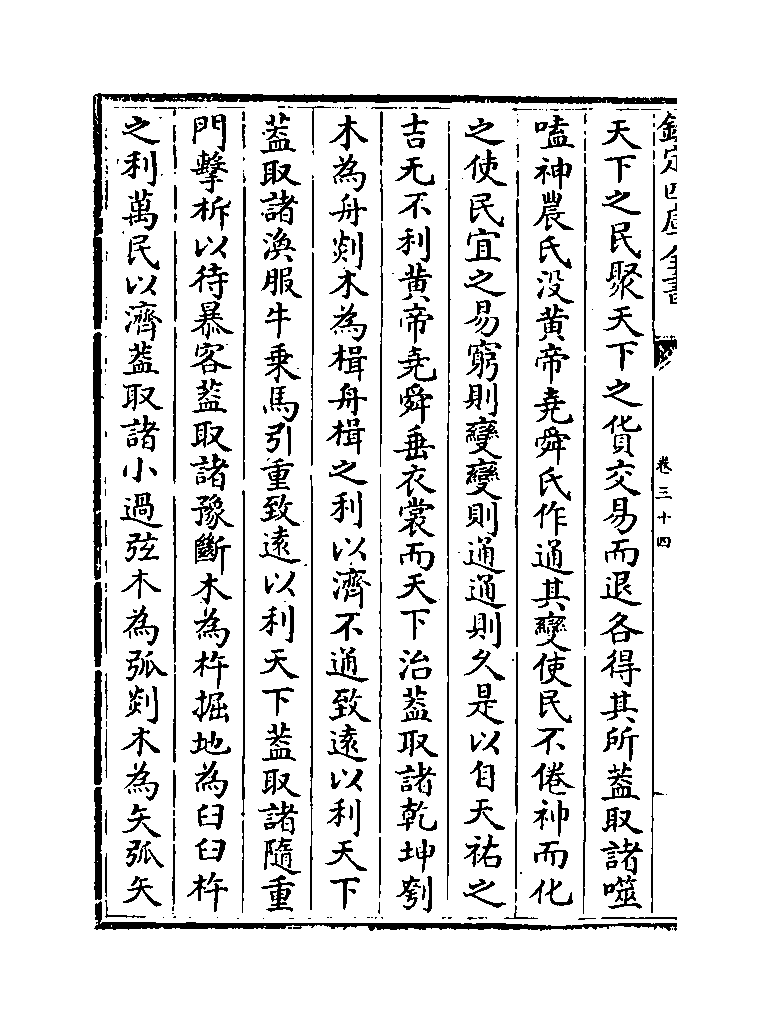 欽定四庫全書
卷三十四
天下之民聚天下之貨交易而退各得其所葢取諸噬
嗑神農氏没黄帝堯舜氏作通其變使民不倦神而化
之使民宜之易窮則變變則通通則久是以自天祐之
吉无不利黄帝堯舜垂衣裳而天下治葢取諸乾坤刳
木為舟剡木為楫舟楫之利以濟不通致逺以利天下
葢取諸渙服牛乗馬引重致逺以利天下葢取諸隨重
門擊柝以待暴客葢取諸豫斷木為杵掘地為臼臼杵
之利萬民以濟葢取諸小過弦木為弧剡木為矢弧矢